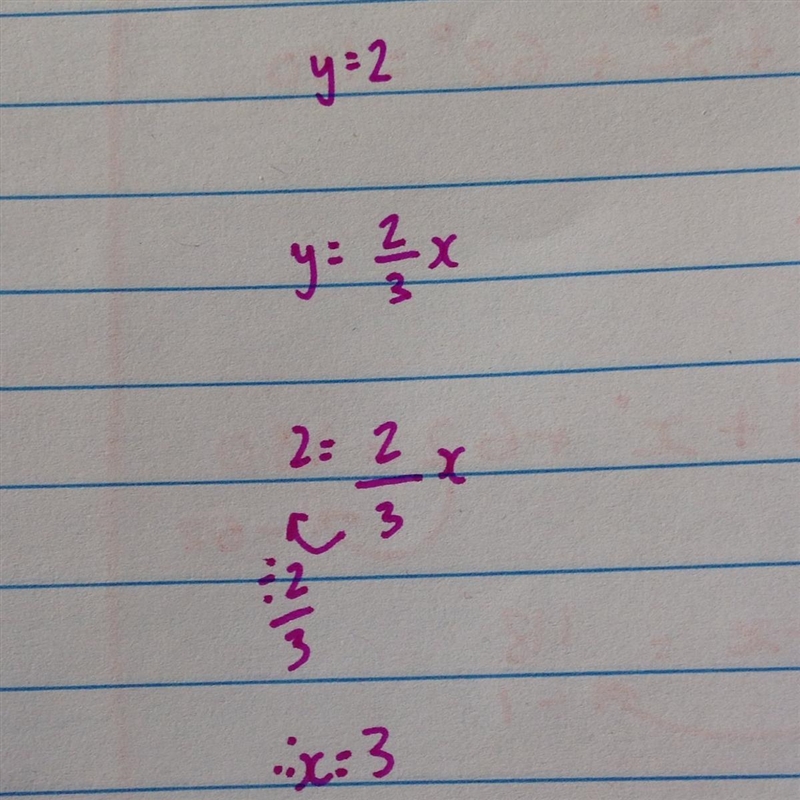 y=2
y= 2/3 x
2= 2/3 x
÷ 2/3
∴x=3